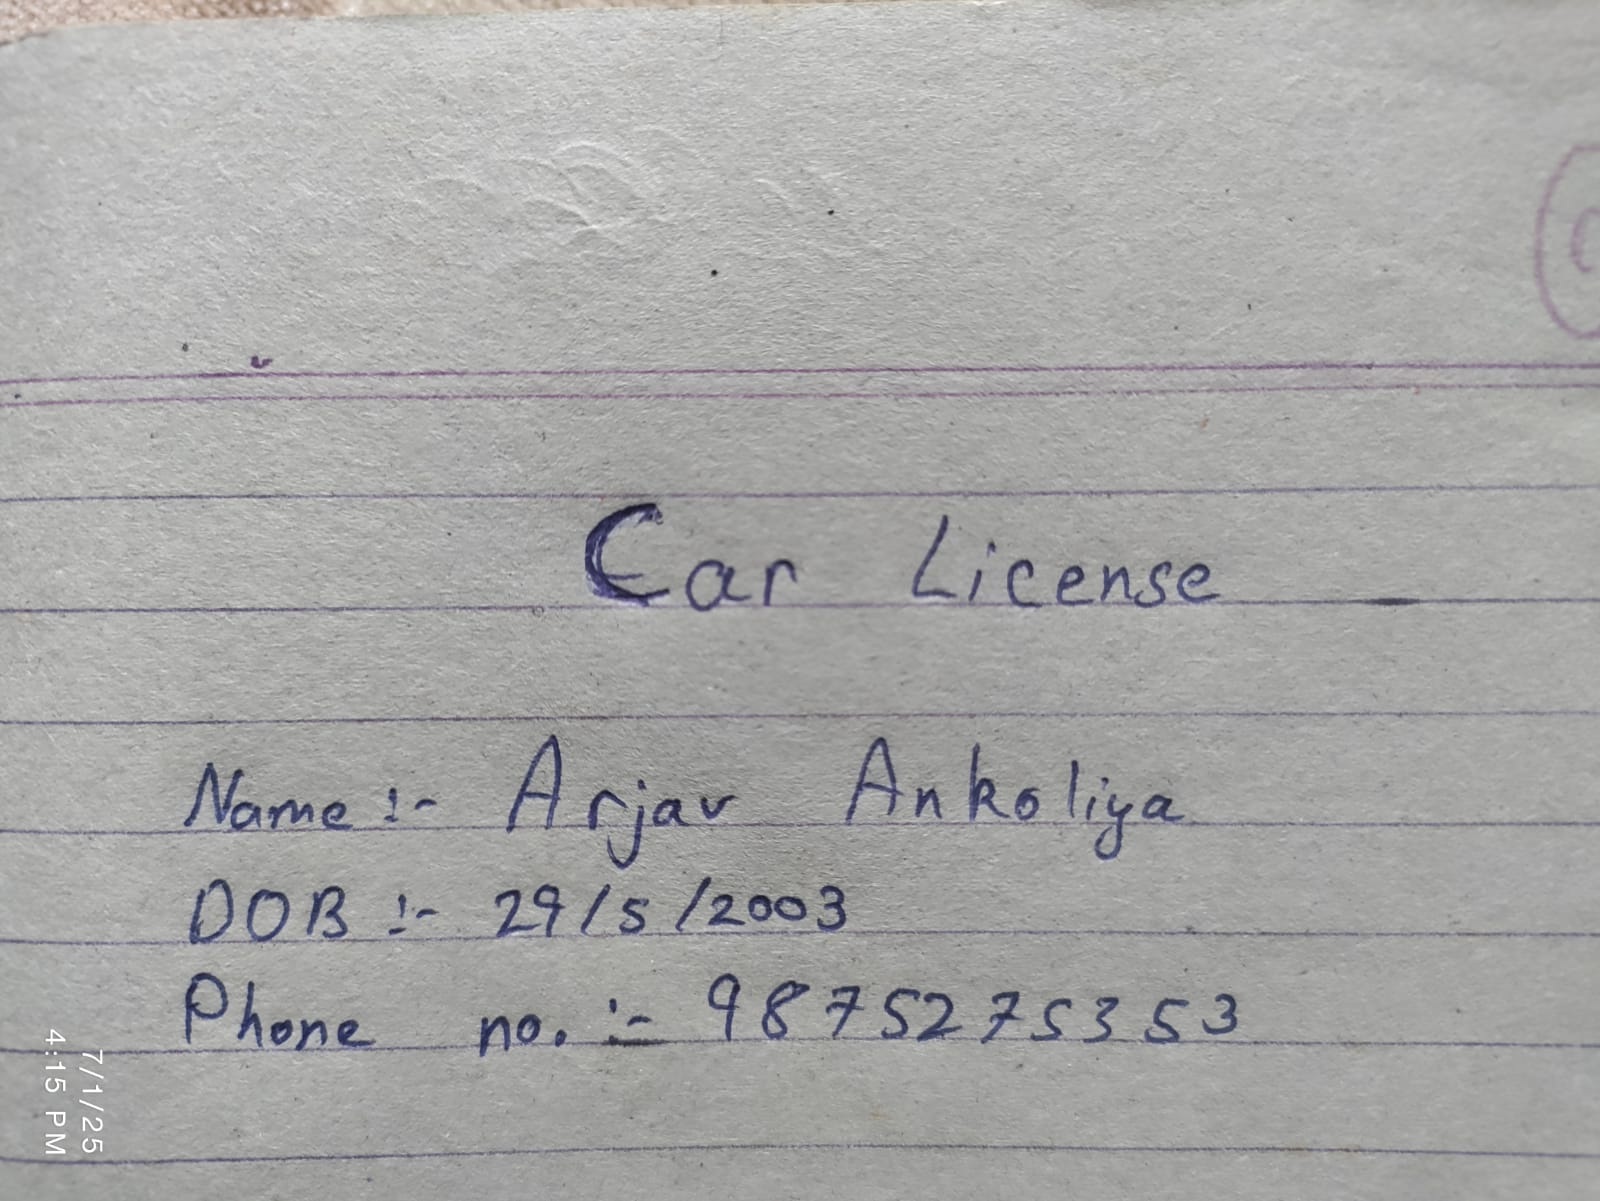 Car License
Name :- Arjav Ankoliya
DOB :- 29/5/2003
Phone no. :- 9875275353
7/1/25
4:15 PM